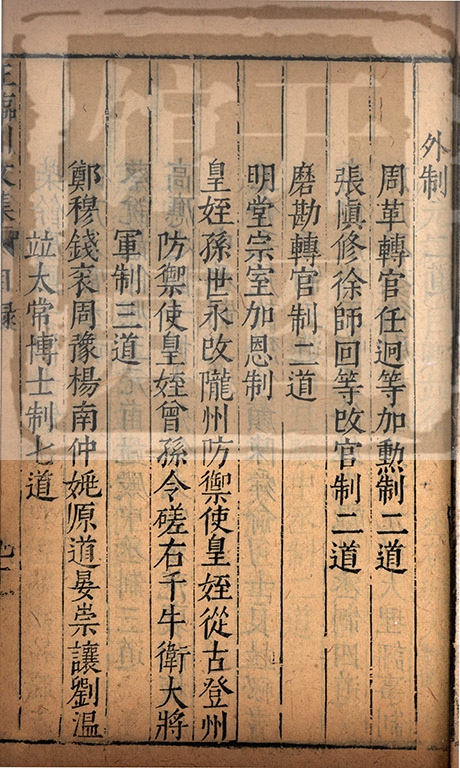 外制
周革轉官任迥等加勲制二道
張愼修徐師回等改官制二道
磨勘轉官制二道
明堂宗室加恩制
皇姪孫世永改隴州防禦使皇姪從古登州
防禦使皇姪曾孫令磋右千牛衛大將
軍制三道
鄭穆錢衮周豫楊南仲姚原道晏崇讓劉温
竝太常博士制七道
王臨川文集
目錄